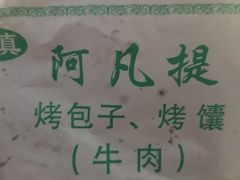 真
阿凡提
烤包子、烤馕
(牛肉)